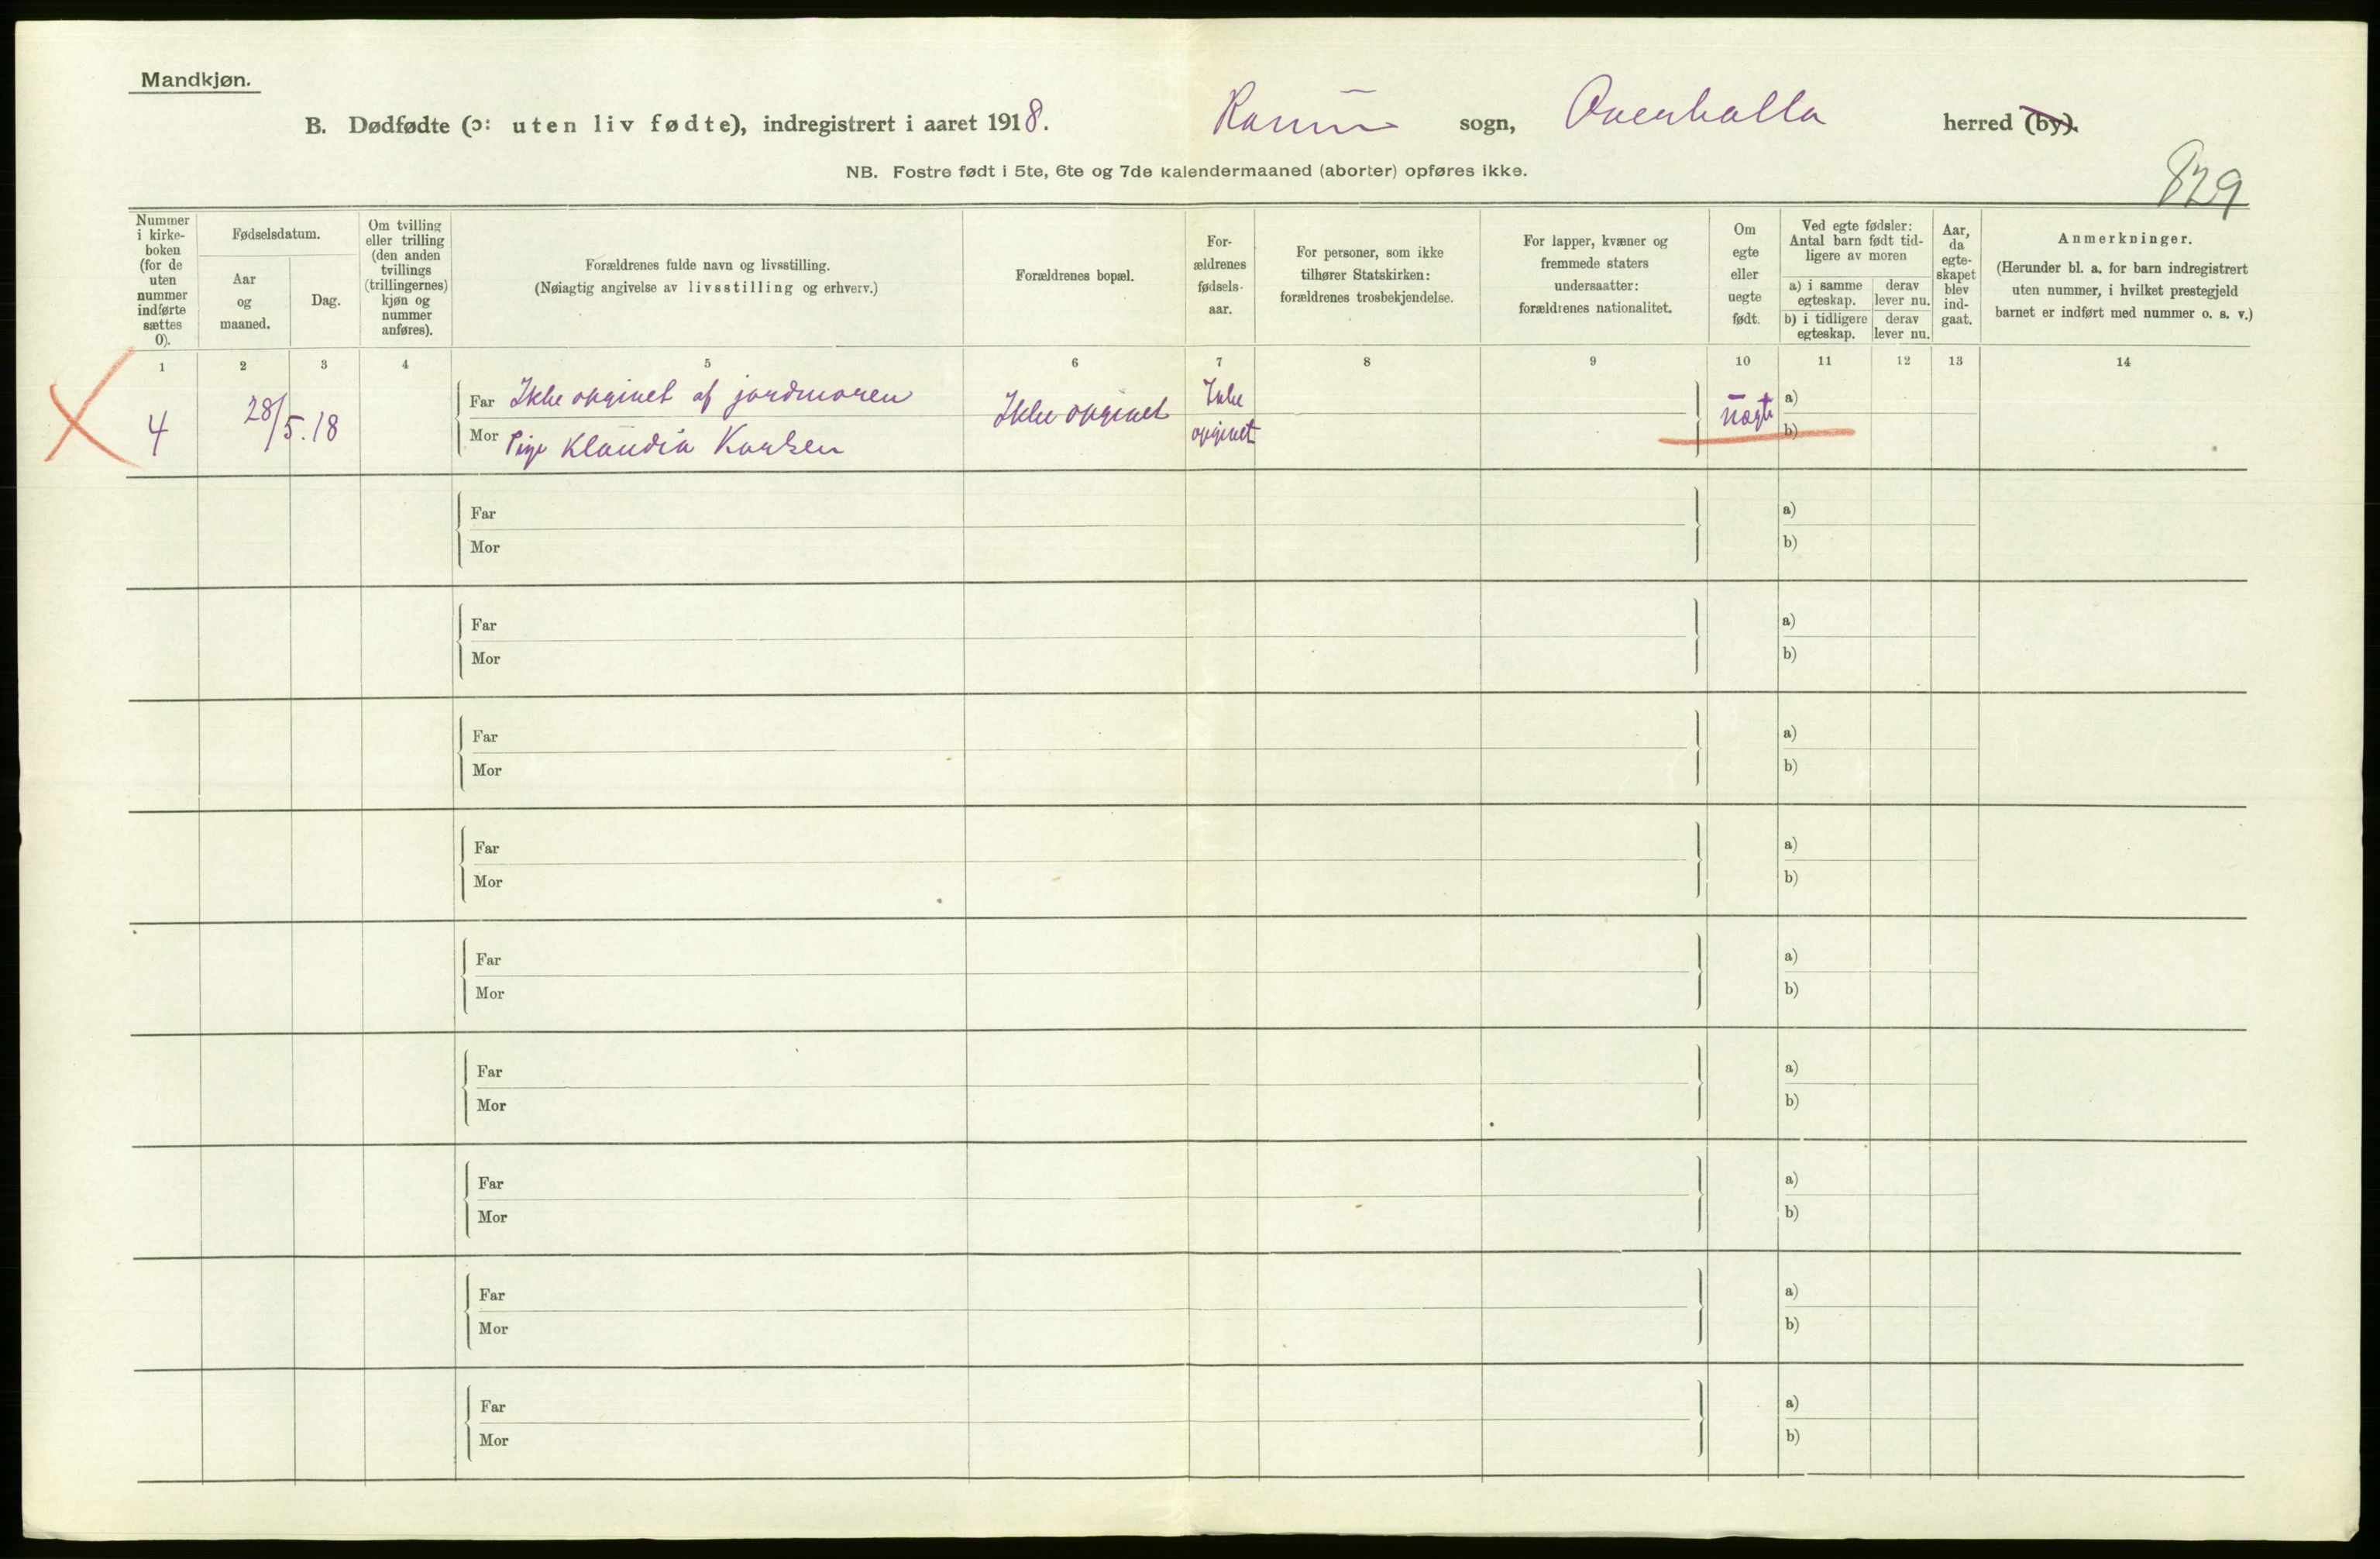 Mandkjøn.
B. Dødfødte (ɔ: uten liv fødte), indregistrert i aaret 1918. Ranum sogn, Overhalla herred (by).
NB. Fostre født i 5te, 6te og 7de kalendermaaned (aborter) opføres ikke.
829
Nummer
i kirke-
boken
(for de
uten
nummer
indførte
sættes
0).
Fødselsdatum.
Aar
og
maaned.
Dag.
Om tvilling
eller trilling
(den anden
tvillings
(trillingernes)
kjøn og
nummer
anføres).
Forældrenes fulde navn og livsstilling.
(Nøiagtig angivelse av livsstilling og erhverv.)
Forældrenes bopæl.
For-
ældrenes
fødsels-
aar.
For personer, som ikke
tilhører Statskirken:
forældrenes trosbekjendelse.
For lapper, kvæner og
fremmede staters
undersaatter:
forældrenes nationalitet.
Om
egte
eller
uegte
født.
Ved egte fødsler:
Antal barn født tid-
ligere av moren
a) i samme
egteskap.
derav
lever nu.
b) i tidligere
egteskap.
derav
lever nu.
Aar,
da
egte-
skapet
blev
ind-
gaat.
Anmerkninger.
(Herunder bl. a. for barn indregistrert
uten nummer, i hvilket prestegjeld
barnet er indført med nummer o. s. v.)
1 2 3 4 5 6 7 8 9 10 11 12 13 14
4 28/5.18
Far Ikke opgivet af jordmoren
Mor Pige Klaudia Karlsen
Ikke opgivet
Ikke
opgivet
uegte
a)
b)
Far
Mor
a)
b)
Far
Mor
a)
b)
Far
Mor
a)
b)
Far
Mor
a)
b)
Far
Mor
a)
b)
Far
Mor
a)
b)
Far
Mor
a)
b)
Far
Mor
a)
b)
Far
Mor
a)
b)